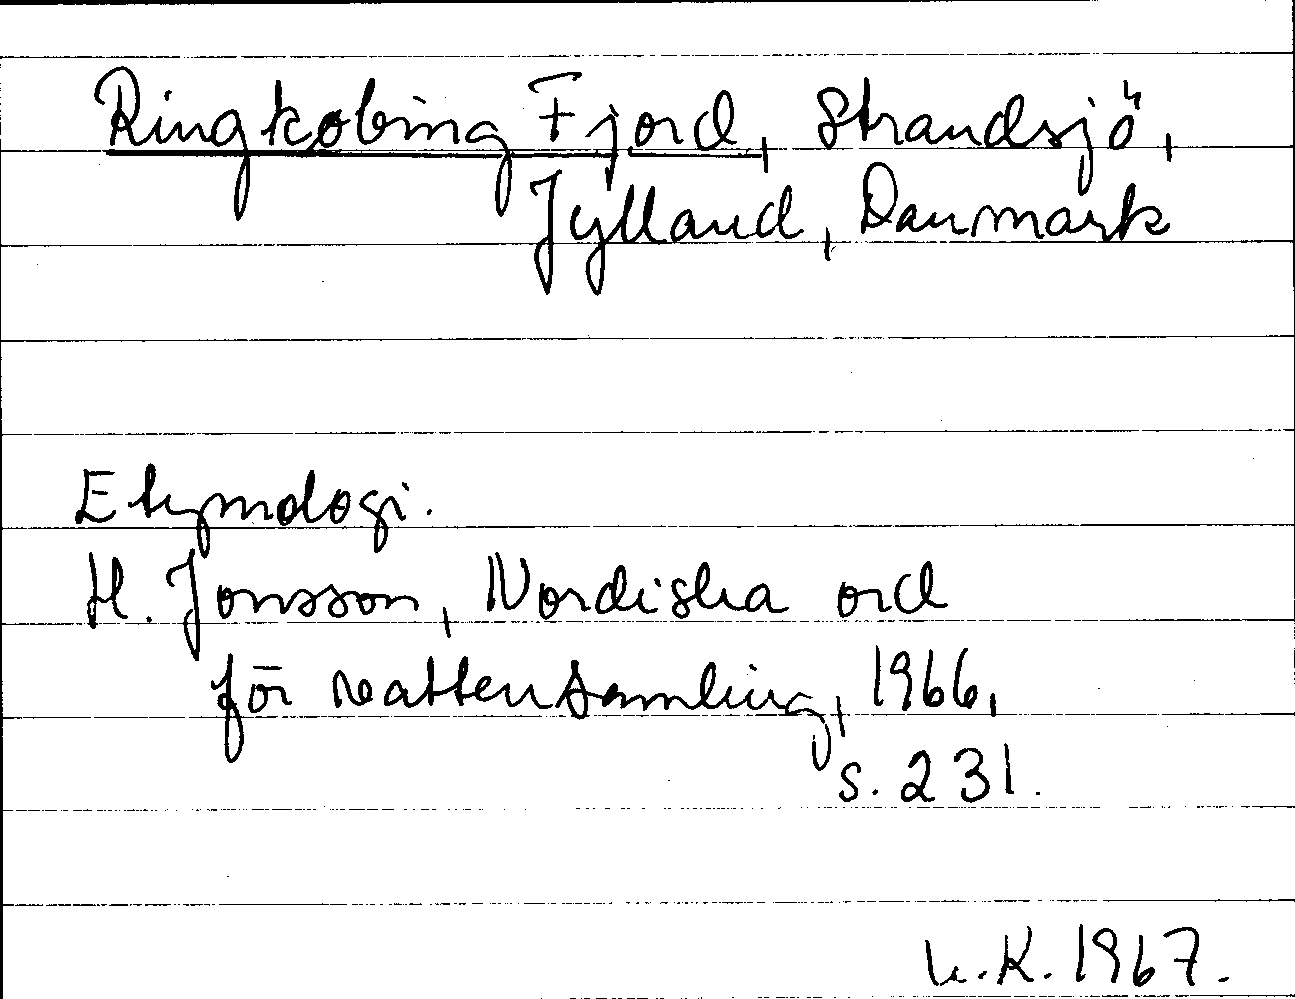 Ringkobing Fjord, Strandsjö,
Jylland, Danmark
Etymologi.
H. Jonsson, Nordiska ord
för vattensamling, 1966,
s. 231.
K. 1967.